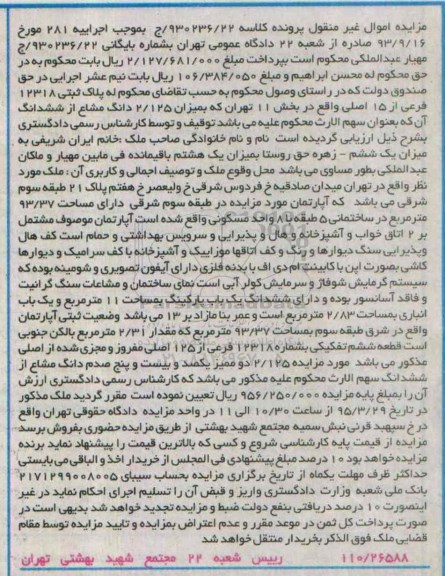 مزایده اموال غیر منقول پرونده کلاسه ۹۳۰۲۳۶/۲۲/ج بموجب اجراییه ۲۸۱ مورخ
۹۳/۹/۱۶ صادره از شعبه ۲۲ دادگاه عمومی تهران بشماره بایگانی ۹۳۰۲۳۶/۲۲/ج
مهیار عبدالملکی محکوم است بپرداخت مبلغ ۲/۱۲۷/۶۸۱/۰۰۰ ریال بابت محکوم به در
حق محکوم له محسن ابراهیم و مبلغ ۱۰۶/۳۸۴/۰۵۰ ریال بابت نیم عشر اجرایی در حق
صندوق دولت که در راستای وصول محکوم به حسب تقاضای محکوم له پلاک ثبتی ۱۲۳۱۸
فرعی از ۱۵ اصلی واقع در بخش ۱۱ تهران که بمیزان ۲/۱۲۵ دانگ مشاع از ششدانگ
آن که بعنوان سهم الارث محکوم علیه می باشد توقیف و توسط کارشناس رسمی دادگستری
بشرح ذیل ارزیابی گردیده است نام و نام خانوادگی صاحب ملک :خانم ایران شریفی به
میزان یک ششم - زهره حق روستا بمیزان یک هشتم باقیمانده فی مابین مهیار و ماکان
عبدالملکی بطور مساوی می باشد محل وقوع ملک و توصیف اجمالی و کاربری آن : ملک مورد
نظر واقع در تهران میدان صادقیه خ فردوس شرقی خ ولیعصر خ هفتم پلاک ۲۱ طبقه سوم
شرقی می باشد که آپارتمان مورد مزایده در طبقه سوم شرقی دارای مساحت ۹۳/۳۷
مترمربع در ساختمانی ۵ طبقه با ۸ واحد مسکونی واقع شده است آپارتمان موصوف مشتمل
بر ۲ اتاق خواب و آشپزخانه و هال و پذیرایی و سرویس بهداشتی و حمام است کف هال
وپذیرایی سنگ دیوارها و رنگ و کف اتاقها موزاییک و آشپزخانه با کف سرامیک و دیوارها
کاشی بصورت اپن با کابینت ام دی اف با بدنه فلزی دارای آیفون تصویری و شومینه بوده که
سیستم گرمایش شوفاژ و سرمایش کولر آبی است نمای ساختمان و مشاعات سنگ گرانیت
و فاقد آسانسور بوده و دارای ششدانگ یک باب پارکینگ بمساحت ۱۱ مترمربع و یک باب
انباری بمساحت ۲/۸۳ مترمربع است و عمر بنا مازاد بر ۱۳ می باشد وضعیت ثبتی آپارتمان
واقع در شرق طبقه سوم بمساحت ۹۳/۳۷ مترمربع که مقدار ۲/۳۱ مترمربع بالکن جنوبی
است قطعه ششم تفکیکی بشماره ۱۲۳۱۸ فرعی از ۱۲۵ اصلی مفروز و مجزی شده از اصلی
مذکور می باشد مورد مزایده ۲/۱۲۵ دو ممیز یکصد و بیست و پنج صدم دانگ مشاع از
ششدانگ سهم الارث محکوم علیه مذکور می باشد که کارشناس رسمی دادگستری ارزش
آن را بمبلغ پایه مزایده ۹۵۶/۲۵۰/۰۰۰ ریال تعیین نموده است مقرر گردید ملک مذکور
در تاریخ ۹۵/۳/۲۹ از ساعت ۱۰/۳۰ الی ۱۱ در واحد مزایده دادگاه حقوقی تهران واقع
در خ سپهبد قرنی نبش سمیه مجتمع شهید بهشتی از طریق مزایده حضوری بفروش برسد
مزایده از قیمت پایه کارشناسی شروع و کسی که بالاترین قیمت را پیشنهاد نماید برنده
مزایده خواهد بود ۱۰ درصد مبلغ پیشنهادی فی المجلس از خریدار اخذ و الباقی می بایستی
حداکثر ظرف مهلت یکماه از تاریخ برگزاری مزایده بحساب سیبای ۲۱۷۱۲۹۹۰۰۸۰۰۵
بانک ملی شعبه وزارت دادگستری واریز و قبض آن را تسلیم اجرای احکام نماید در غیر
اینصورت ۱۰ درصد دریافتی بنفع دولت ضبط و مزایده تجدید خواهد شد بدیهی است در
صورت پرداخت کل ثمن در موعد مقرر و عدم اعتراض بمزایده و تایید مزایده توسط مقام
قضایی ملک فوق الذکر بخریدار منتقل خواهد شد
۱۱۰/۲۶۵۸۸ رییس شعبه ۲۲ مجتمع شهید بهشتی تهران